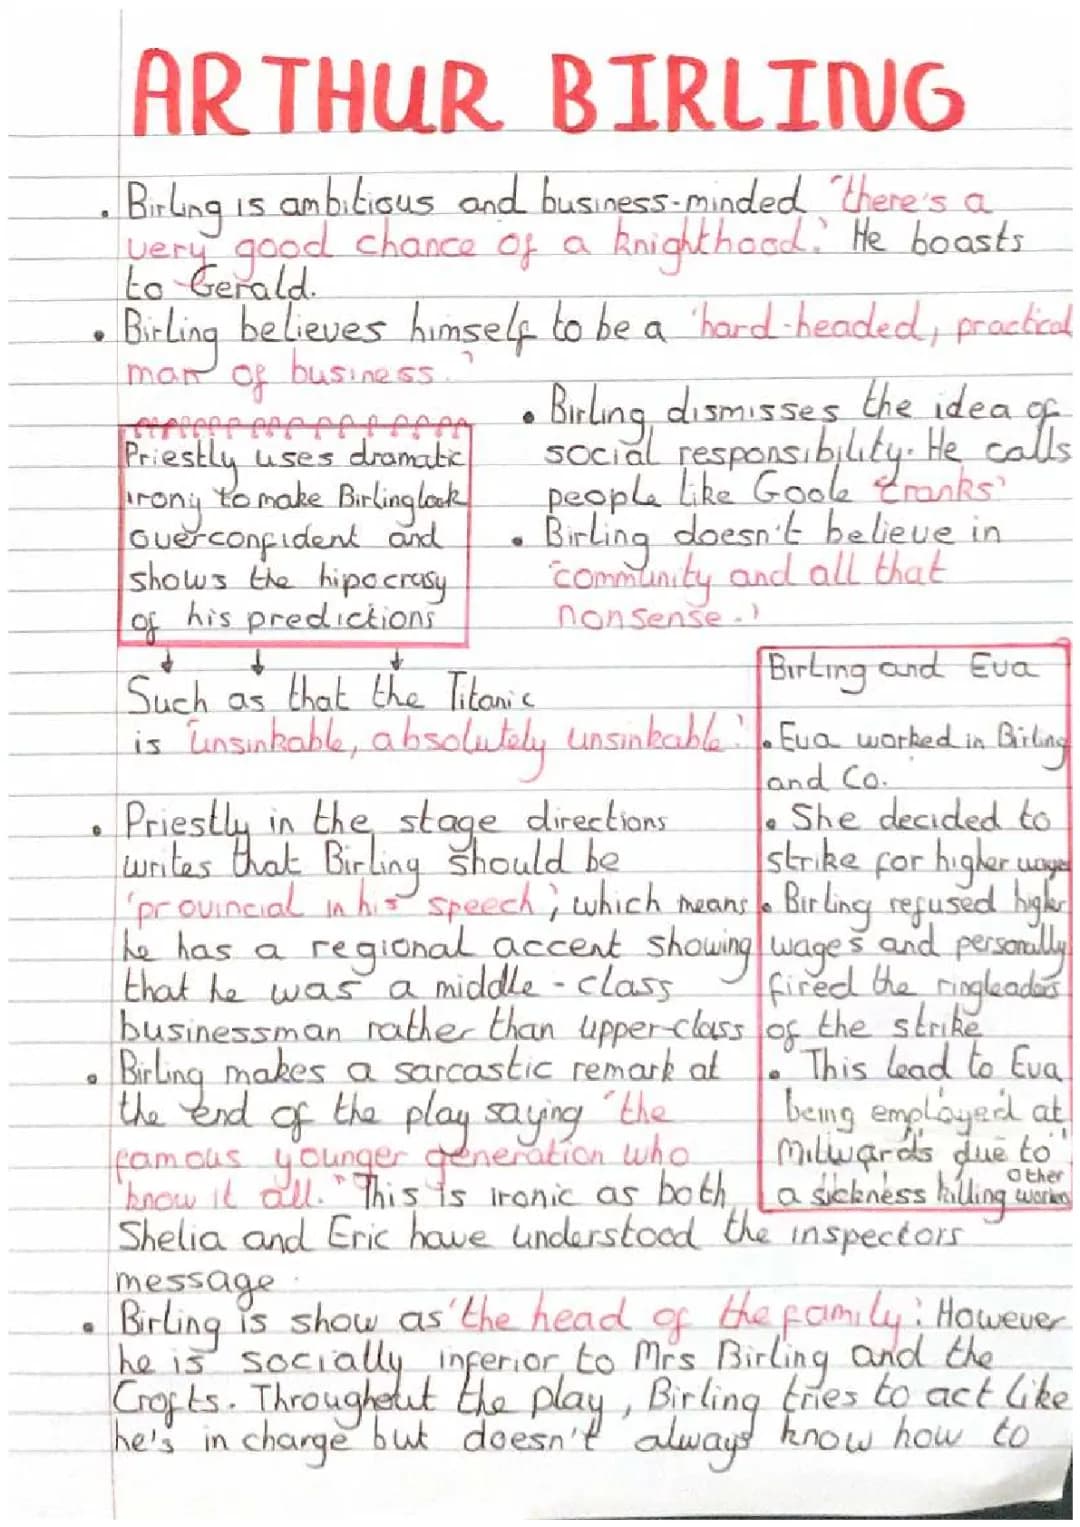 ARTHUR BIRLING
• Birling is ambitious and business-minded "there's a
very good chance of a knighthood." He boasts
to Gerald.
• Birling believes himself to be a 'hard-headed, practical
man of business.'
Priestly uses dramatic
irony to make Birling look
overconfident and
shows the hipocrasy
of his predictions
Such as that the Titanic
is "unsinkable, absolutely unsinkable."
• Birling dismisses the idea of
social responsibility. He calls
people like Goole 'cranks'
• Birling doesn't believe in
"community and all that
nonsense."
Birling and Eva
• Eva worked in Birling
and Co.
• She decided to
strike for higher wages
• Birling refused higher
wages and personally
fired the ringleaders
of the strike
• This lead to Eva
being employed at
Milwards due to
a sickness killing other workers
• Priestly in the stage directions
writes that Birling should be
'provincial in his speech', which means
he has a regional accent showing
that he was a middle-class
businessman rather than upper-class
• Birling makes a sarcastic remark at
the end of the play saying "the
famous younger generation who
know it all." This is ironic as both
Shelia and Eric have understood the inspectors
message.
• Birling is show as 'the head of the family'. However
he is socially inferior to Mrs Birling and the
Crofts. Throughout the play, Birling tries to act like
he's in charge but doesn't always know how to